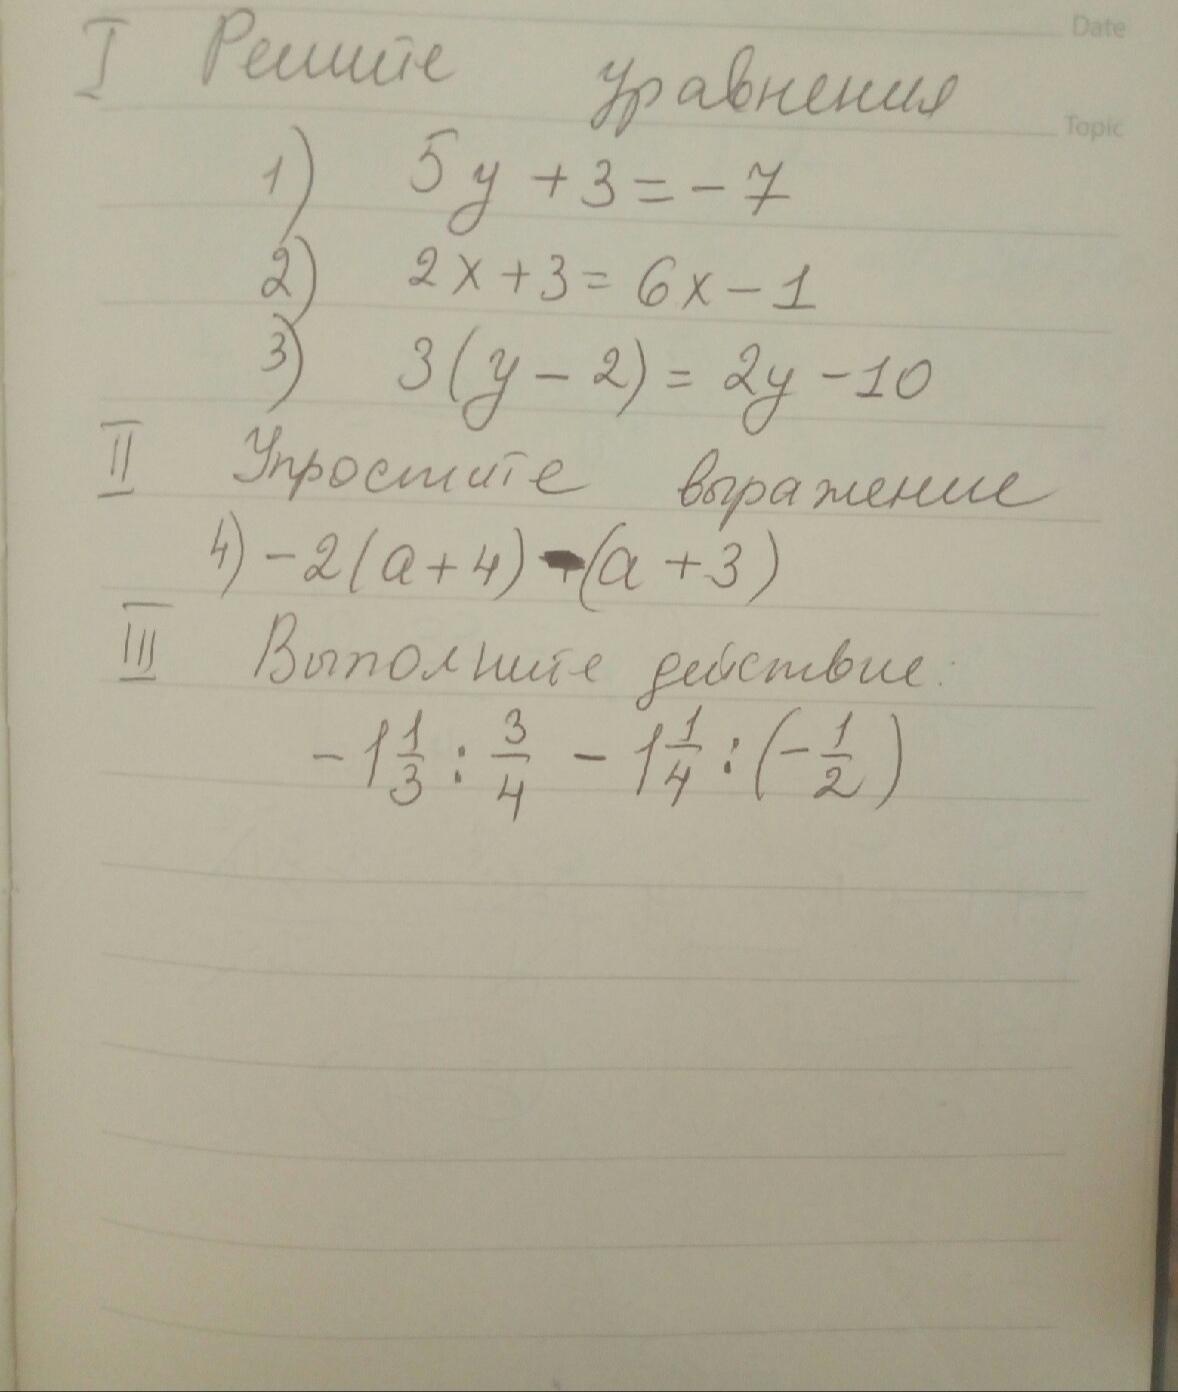 Date
I Решите уравнения
Topic
1) 5y + 3 = - 7
2) 2x + 3 = 6x - 1
3) 3(y - 2) = 2y - 10
II Упростите выражение
4) - 2(a + 4) - (a + 3)
III Выполните действие:
- 1 1/3 : 3/4 - 1 1/4 : (- 1/2)